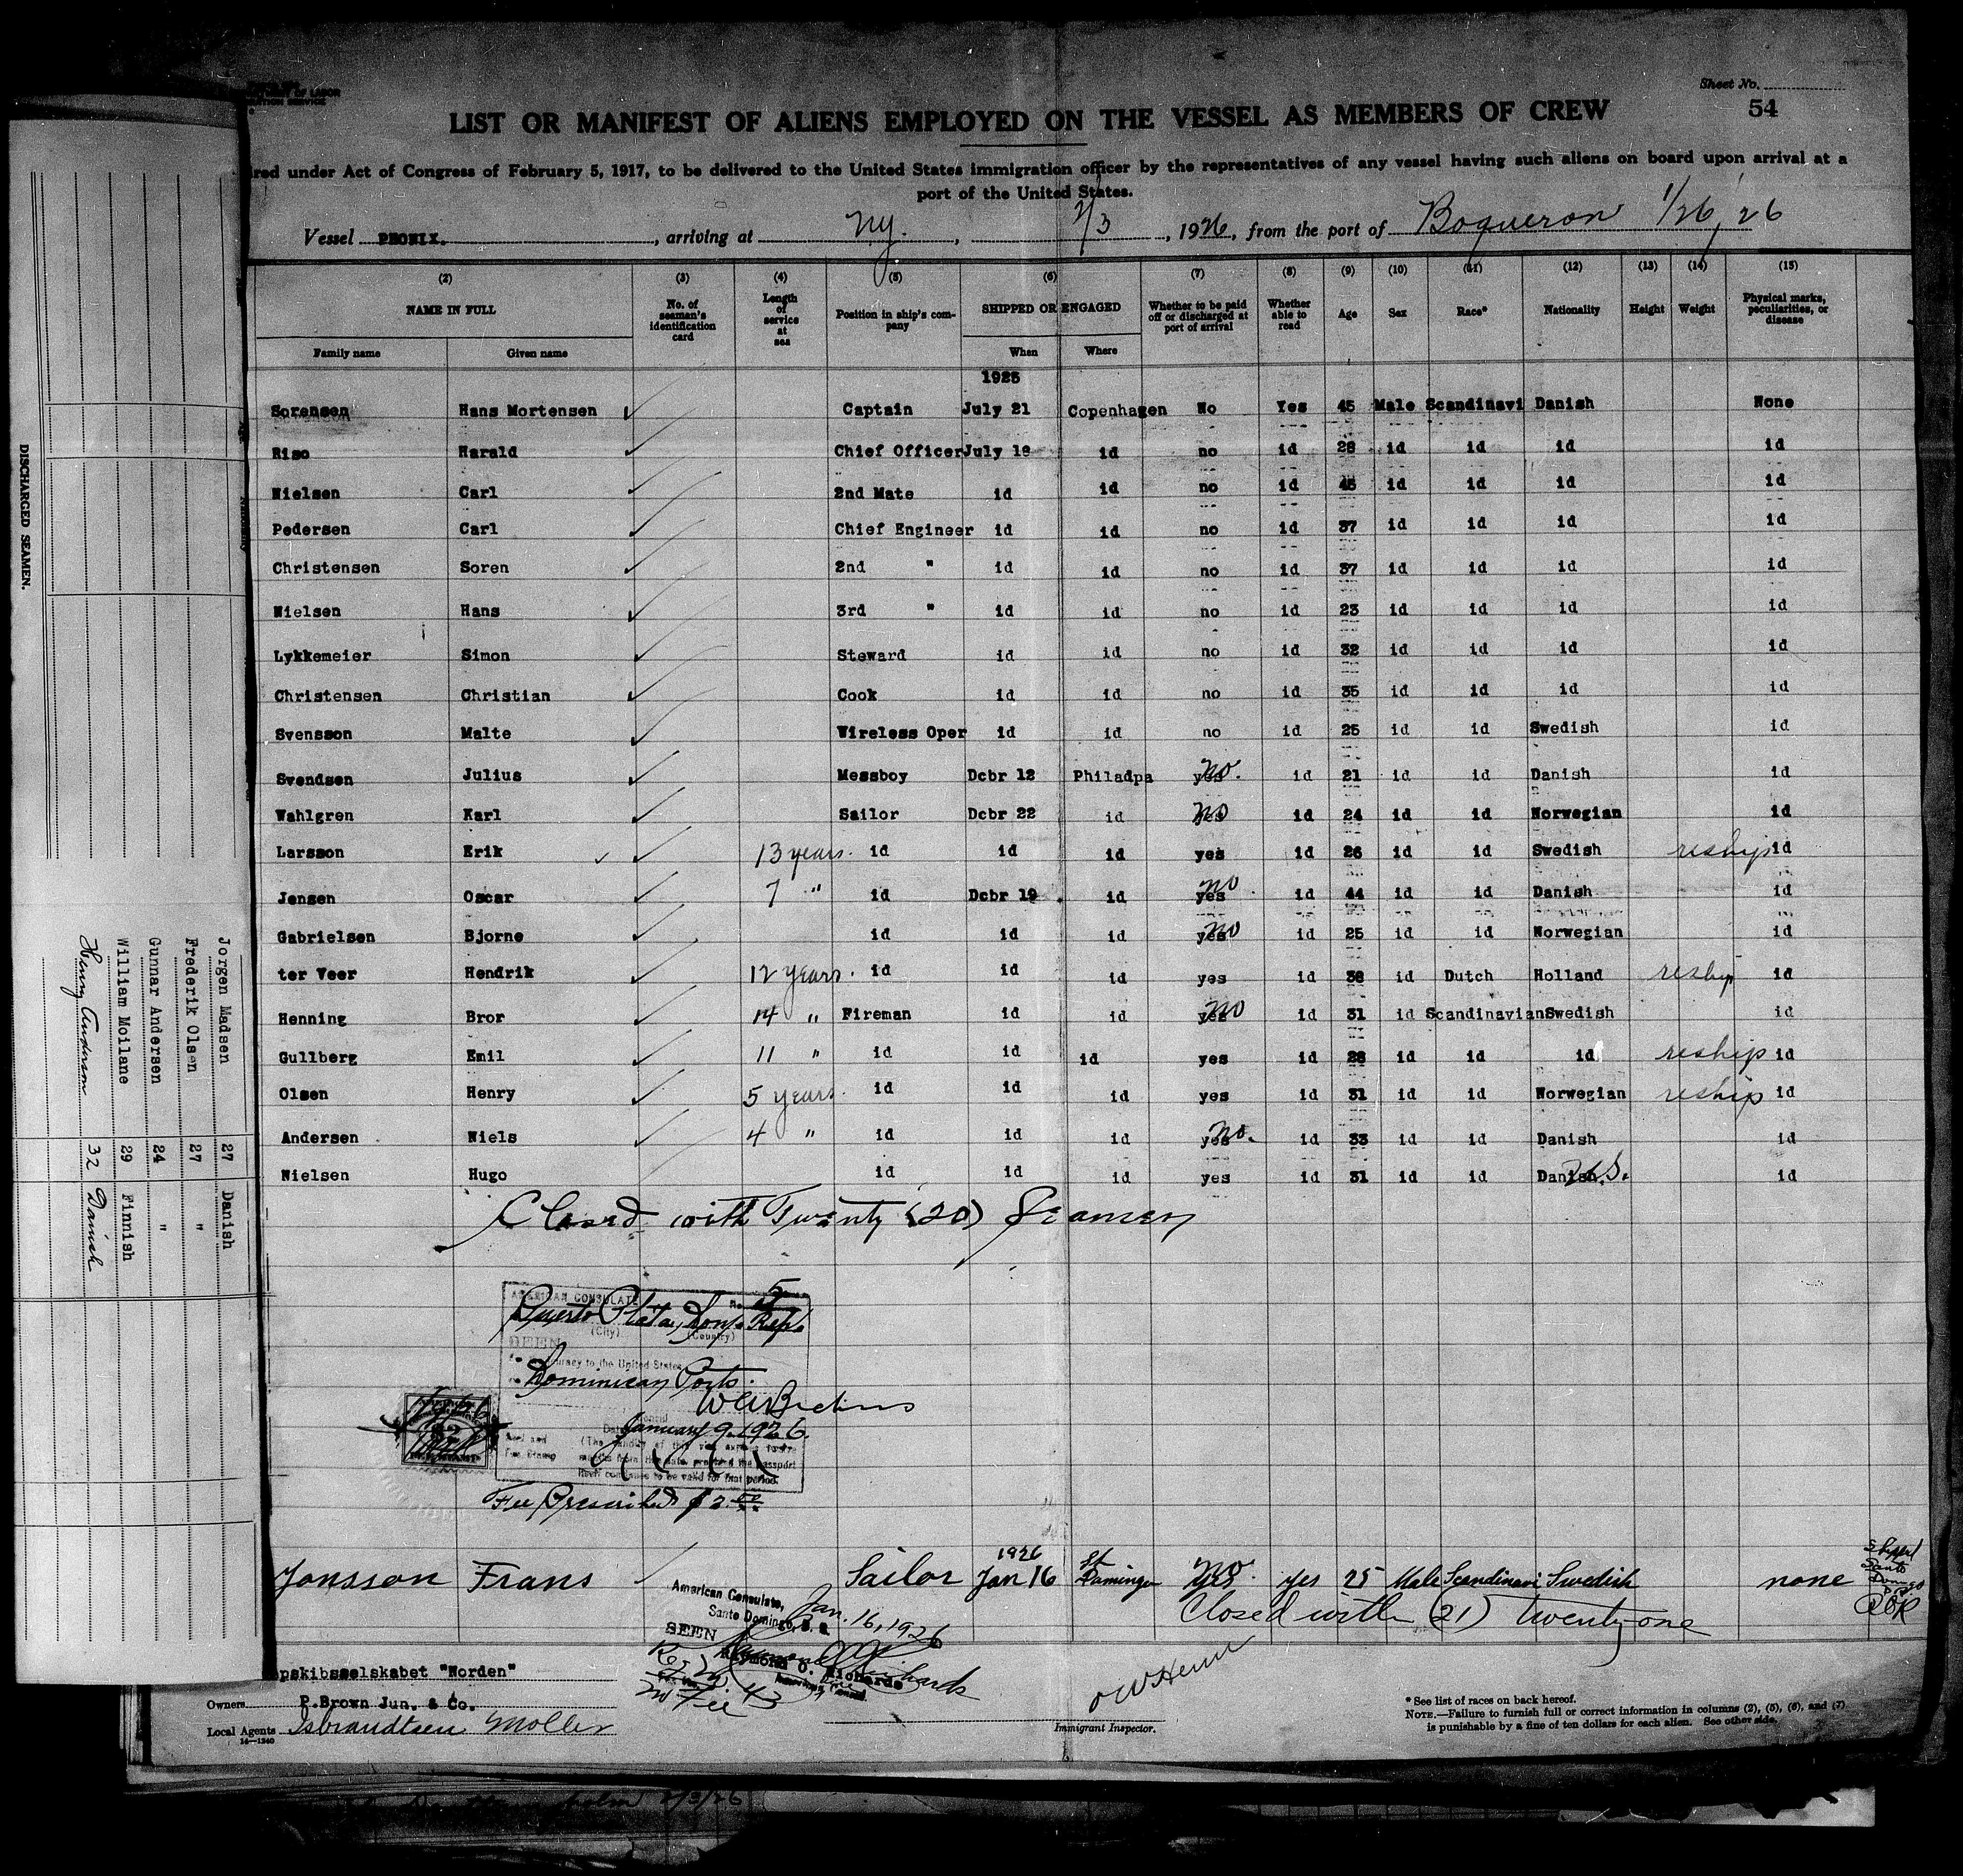 Sheet No.
54
LIST OR MANIFEST OF ALIENS EMPLOYED ON THE VESSEL AS MEMBERS OF CREW
red under Act of Congress of February 5, 1917, to be delivered to the United States immigration officer by the representatives of any vessel having such aliens on board upon arrival at a
port of the United States.
Vessel PHONIX. , arriving at Ny. , 2/3 , 1926, from the port of Boqueron 1/26, 26
(2) (3) (4) (5) (6) (7) (8) (9) (10) (11) (12) (13) (14) (15)
NAME IN FULL No. of seaman's identification card Length of service at sea Position in ship's company SHIPPED OR ENGAGED Whether to be paid off or discharged at port of arrival Whether able to read Age Sex Race* Nationality Height Weight Physical marks, peculiarities, or disease
Family name Given name When Where
1925
Sorensen Hans Mortensen Captain July 21 Copenhagen No Yes 45 Male Scandinavi Danish None
Riso Harald Chief Officer July 18 id no id 28 id id id id
Nielsen Carl 2nd Mate id id no id 45 id id id id
Pedersen Carl Chief Engineer id id no id 37 id id id id
Christensen Soren 2nd " id id no id 37 id id id id
Nielsen Hans 3rd " id id no id 23 id id id id
Lykkemeier Simon Steward id id no id 32 id id id id
Christensen Christian Cook id id no id 35 id id id id
Svensson Malte Wireless Oper id id no id 25 id id Swedish id
Svendsen Julius Messboy Dcbr 12 Philadpa yes no. id 21 id id Danish id
Wahlgren Karl Sailor Dcbr 22 id yes no id 24 id id Norwegian id
Larsson Erik 13 years. id id id yes id 26 id id Swedish reship id
Jensen Oscar 7 " id Dcbr 19 id yes no id 44 id id Danish id
Gabrielsen Bjorne id id id yes no id 25 id id Norwegian id
ter Veer Hendrik 12 years. id id id yes id 38 id Dutch Holland reship id
Henning Bror 14 " Fireman id id yes no id 31 id Scandinavian Swedish id
Gullberg Emil 11 " id id id yes id 28 id id id reship id
Olsen Henry 5 years. id id id yes id 31 id id Norwegian reship id
Andersen Niels 4 " id id id yes no. id 33 id id Danish id
Nielsen Hugo id id id yes id 31 id id Danish U.S. id
Closed with Twenty (20) Seamen
AMERICAN CONSULATE
No. 5
Puerto Plata, Dom. Rep.
(City) (Country)
SEEN
Journey to the United States
Dominican Ports.
January 9. 1926.
Fee Prescribed $2.00
1926
Jonsson Frans Sailor Jan 16 St Domingo yes no. yes 25 Male Scandinavi Swedish none
Closed with (21) twenty one
American Consulate,
Santo Domingo,
Jan. 16, 1926
SEEN
Raymond O. Richards
No Fee
pskibsselskabet "Norden"
Owners P.Brown Jun. & Co.
Local Agents Isbrandtsen Moller
14—1240
Immigrant Inspector.
* See list of races on back hereof.
NOTE.—Failure to furnish full or correct information in columns (2), (5), (6), and (7)
is punishable by a fine of ten dollars for each alien. See other side.
DISCHARGED SEAMEN.
Jorgen Madsen 27 Danish
Frederik Olsen 27 "
Gunnar Andersen 24 "
William Moilane 29 Finnish
Henry Anderson 32 Danish